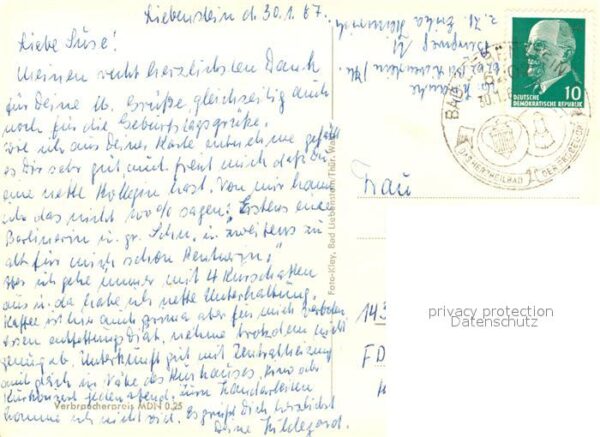 Liebenstein d. 30.1.67.
Liebe Suse!
Meinen recht herzlichsten Dank
für Deine lb. Grüße gleichzeitig auch
noch für die Geburtstagsgrüße.
Wie ich aus Deiner Karte entnehme gefällt
es Dir sehr gut, und freut mich daß Du
eine nette Kollegin hast. Von mir kann
ich das nicht 100% sagen. Erstens eine
Berlinerin u. gr. Schn. u. "zweitens zu
alt für mich schon Rentnerin."
Aber ich gehe immer mit 4 Kurschatten
aus u. da habe ich nette Unterhaltung.
Kaffee ist hier auch prima aber für mich verboten
essen entfettungsdiät, nehme trotzdem nicht
genug ab. Unterkunft gut mit Zentralheizung
und gleich in Nähe des Kurhauses. Kino oder
Kurkonzert jeden abend. zum Handarbeiten
komme ich nicht viel. Es grüßt Dich herzlichst
Deine Hildegard.
Verbraucherpreis MDN 0,25
Foto-Kley, Bad Liebenstein/Thür. Wald
z. Zt. Erika
Frau
143
FD
10
DEUTSCHE
DEMOKRATISCHE REPUBLIK
BAD LIEBENSTEIN
30.1.
DAS HERZHEILBAD
DER WERKTÄTIGEN
privacy protection
Datenschutz